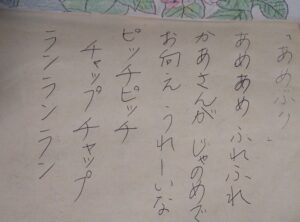 「あめふり」
あめあめ ふれふれ
かあさんが じゃのめで
お向え うれーいな
ピッチピッチ
チャップ チャップ
ランランラン